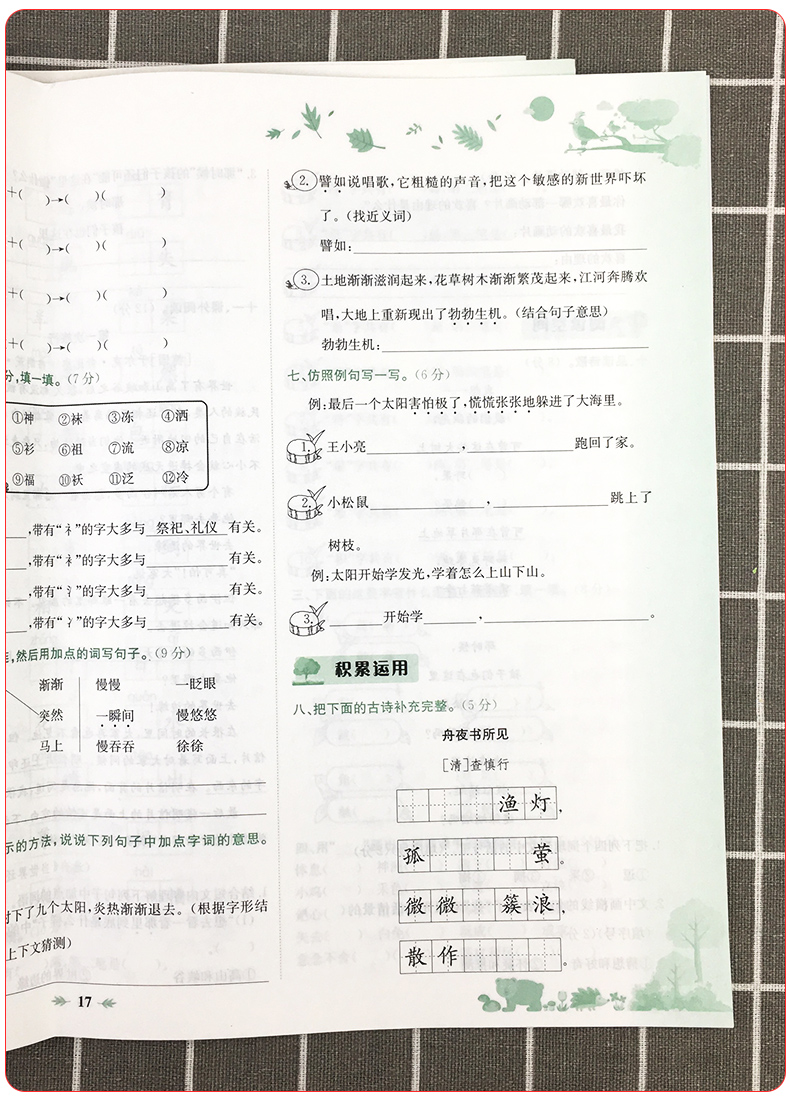 ＋(　　)→(　　)(　　)
＋(　　)→(　　)(　　)
＋(　　)→(　　)(　　)
＋(　　)→(　　)(　　)
分,填一填。(7分)
①神 ②袜 ③冻 ④洒
⑤衫 ⑥祖 ⑦流 ⑧凉
⑨福 ⑩袄 ⑪泛 ⑫冷
,带有“礻”的字大多与 祭祀、礼仪 有关。
,带有“衤”的字大多与 有关。
,带有“氵”的字大多与 有关。
,带有“冫”的字大多与 有关。
,然后用加点的词写句子。(9分)
渐渐 慢慢 一眨眼
突然 一瞬间 慢悠悠
马上 慢吞吞 徐徐
示的方法,说说下列句子中加点字词的意思。
下了九个太阳,炎热渐渐退去。(根据字形结
上下文猜测)
17
2. 譬如说唱歌,它粗糙的声音,把这个敏感的新世界吓坏
了。(找近义词)
譬如:
3. 土地渐渐滋润起来,花草树木渐渐繁茂起来,江河奔腾欢
唱,大地上重新现出了勃勃生机。(结合句子意思)
勃勃生机:
七、仿照例句写一写。(6分)
例:最后一个太阳害怕极了,慌慌张张地躲进了大海里。
1. 王小亮 , 跑回了家。
2. 小松鼠 , 跳上了
树枝。
例:太阳开始学发光,学着怎么上山下山。
3. 开始学 , 。
积累运用
八、把下面的古诗补充完整。(5分)
舟夜书所见
[清]查慎行
渔灯,
孤 萤。
微微 簇浪,
散作 。